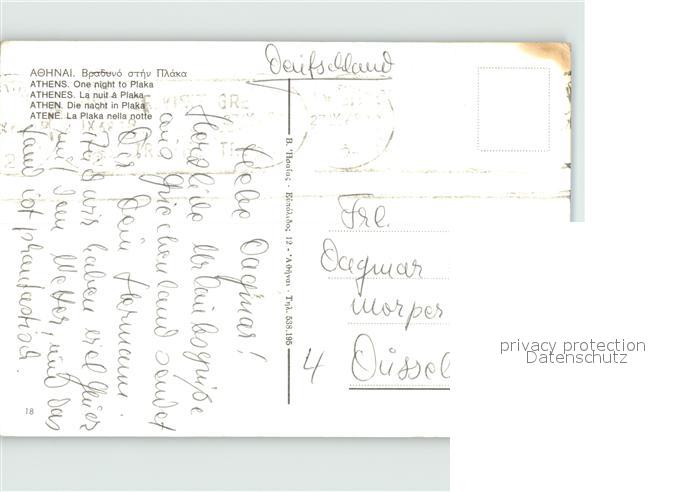 ΑΘΗΝΑΙ. Βραδυνό στήν Πλάκα
ATHENS. One night to Plaka
ATHENES. La nuit à Plaka
ATHEN. Die nacht in Plaka
ATENE. La Plaka nella notte
Deutschland
Liebe Dagmar!
Herzliche Urlaubsgrüße
aus Griechenland sendet
Dir Dein Hermann.
wir haben viel
mit dem Wetter, und das
Land ist phantastisch.
Β. · Εὐπόλιδος 12 - Ἀθῆναι - Τηλ. 538.195
Frl.
Dagmar
Morper
4 Düssel
18
privacy protection
Datenschutz